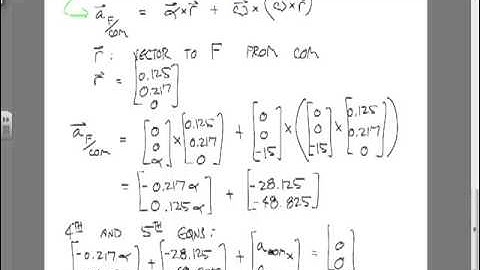 a⃗ F/COM = α⃗ × r⃗ + ω⃗ × (ω⃗ × r⃗)
r⃗ : VECTOR TO F FROM COM
r⃗ = [0.125 0.217 0]
a⃗ F/COM = [0 0 α] × [0.125 0.217 0] + [0 0 -15] × ([0 0 -15] × [0.125 0.217 0])
= [-0.217α 0.125α] + [-28.125 -48.825]
4TH AND 5TH EQNS:
[-0.217α] + [-28.125] + [a COM x] = [0 0]